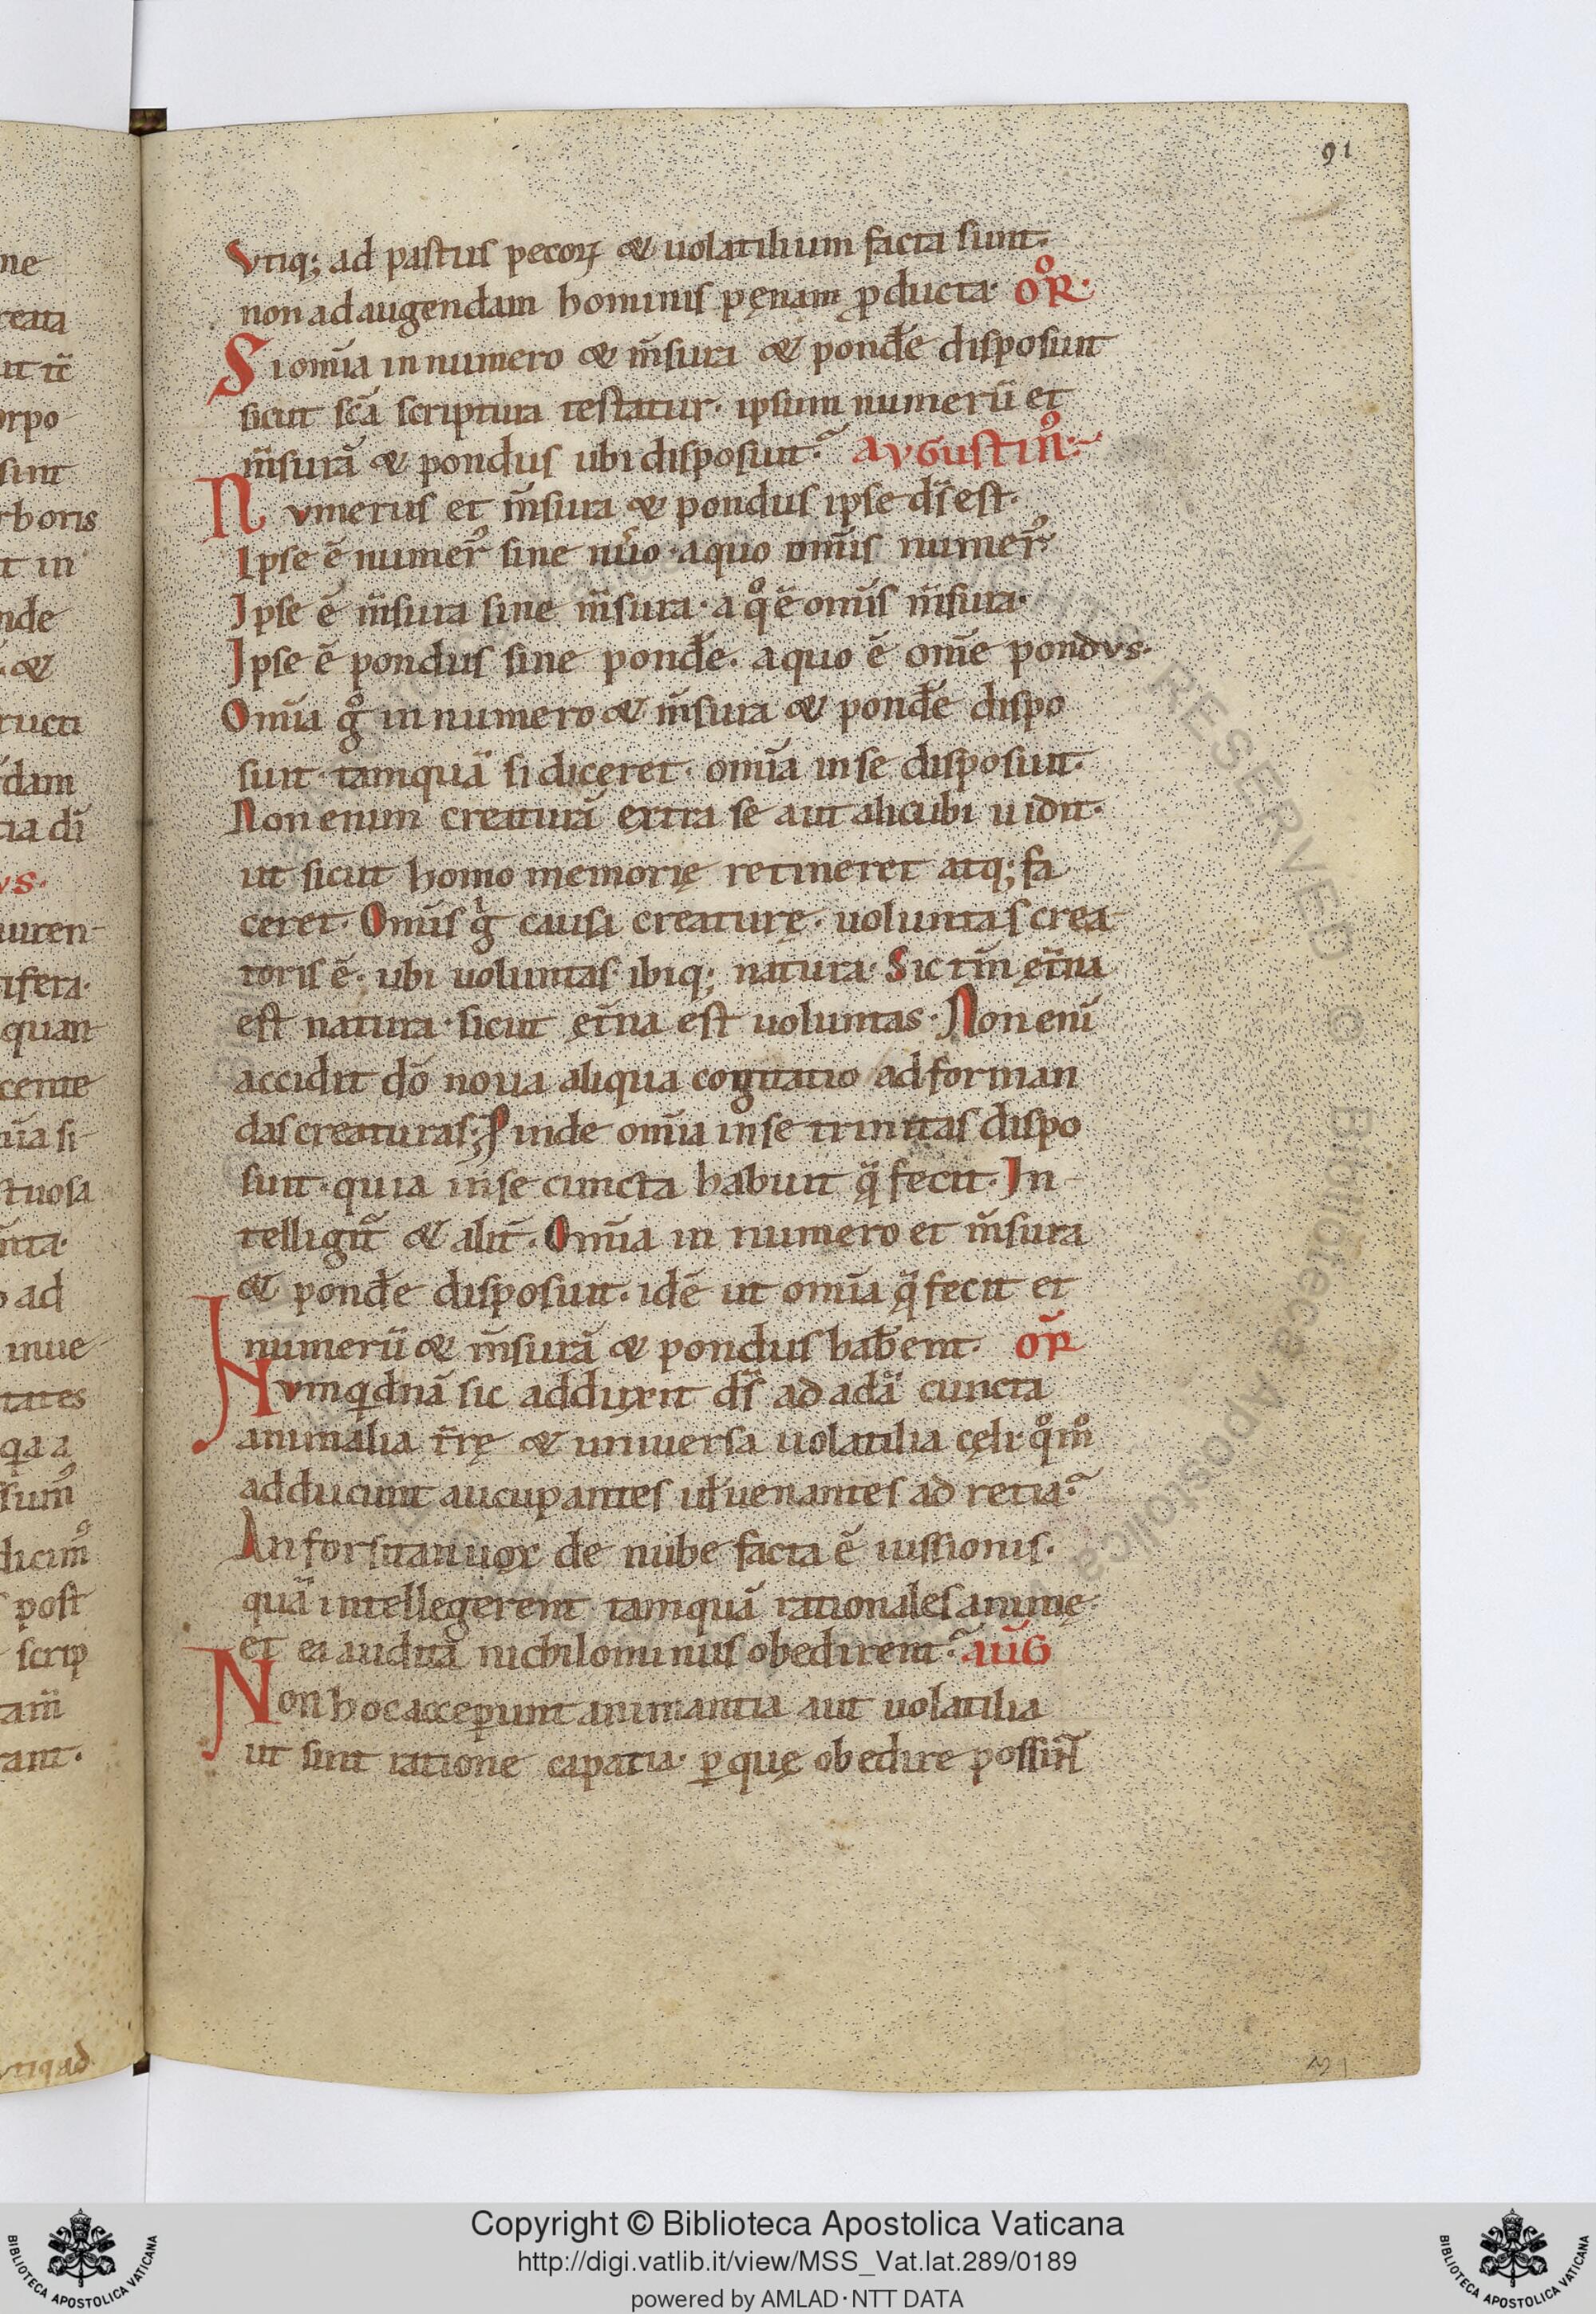 91
Vtiq; ad pastus pecoꝝ & uolatilium facta sunt·
non ad augendam hominis pęnam ꝓducta· OR̊·
Si om̄ia in numero & m̄sura & pond̄e disposuit
sicut sc̄a scriptura testatur· ipsum numerū et
m̄surā & pondus ubi disposuit? AVGUSTIN̊·
Nvmerus et m̄sura & pondus ipse d̄s est·
Ipse ē numer᷒ sine nūo· a quo om̄is numer᷒·
Ipse ē m̄sura sine m̄sura· a qͦ ē om̄is m̄sura·
Ipse ē pondus sine pond̄e· a quo ē om̄e pondvs·
Om̄ia gͦ in numero & m̄sura & pond̄e dispo
suit· tamquā si diceret· om̄ia in se disposuit·
Non enim creaturā extra se aut alicubi uidit·
ut sicut homo memorię retineret atq; fa
ceret· Om̄is gͥ causa creaturę· uoluntas crea
toris ē· ubi uoluntas· ibiq; natura· Sic tm̄ ęt̄na
est natura· sicut ęt̄na est uoluntas· Non enī
accidit dō noua aliqua cogitatio ad forman
das creaturas; Ꝓinde om̄ia in se trinitas dispo
suit· quia in se cuncta habuit q̄ fecit· In-
telligit᷑ & alit̄· Om̄ia in numero et m̄sura
& pond̄e disposuit· idē ut om̄ia q̄ fecit et
numerū & m̄surā & pondus habent· OR̄
Nvmqͥdnā sic adduxit d̄s ad adā cuncta
animalia t̄rę & uniuersa uolatilia cęli· qͦmͦ
adducunt aucupantes uƚ uenantes ad retia?
An forsitan uox de nube facta ē iussionis·
quā intellegerent tamquā rationales animę·
et ea auditā nichilominus obedirent? AUG
Non hoc acceꝑunt animantia aut uolatilia
ut sint ratione capatia· ꝑ quę obedire possin᷑t
Copyright © Biblioteca Apostolica Vaticana
http://digi.vatlib.it/view/MSS_Vat.lat.289/0189
powered by AMLAD·NTT DATA